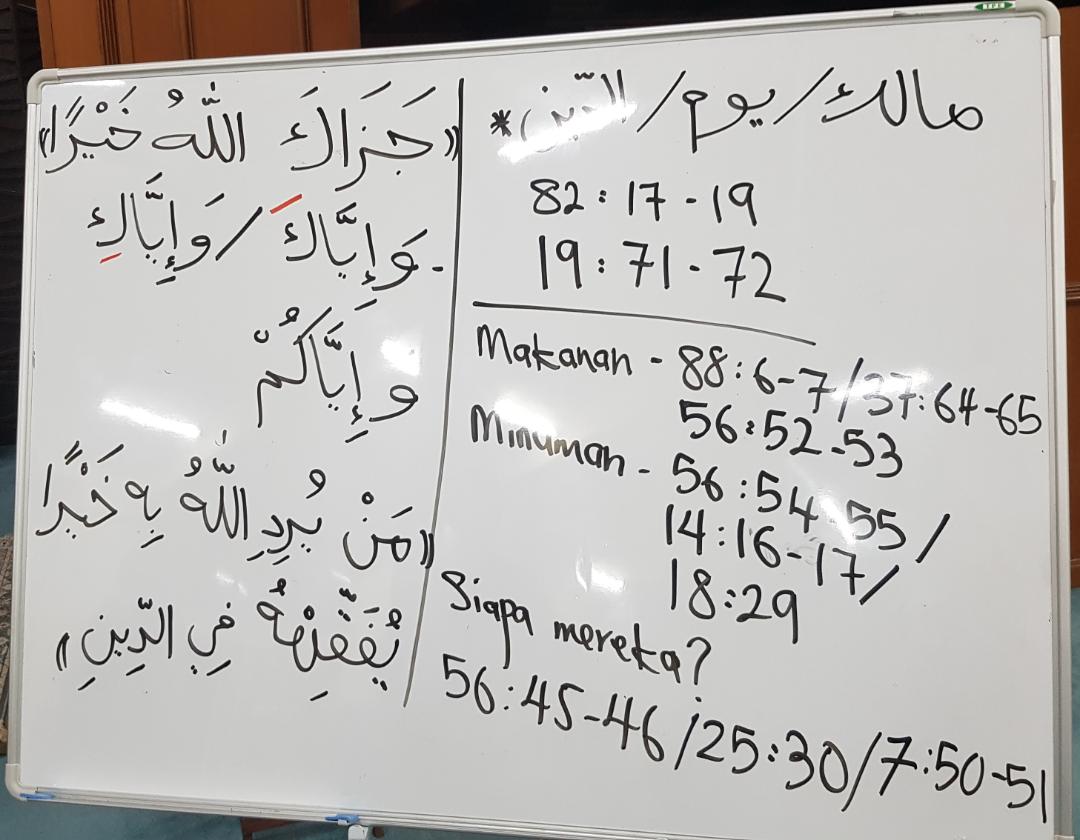 * مالك / يوم / الدّين
82 : 17 - 19
19 : 71 - 72
Makanan - 88:6-7/37:64-65
56:52-53
Minuman - 56:54-55/
14:16-17/
18:29
Siapa mereka?
56:45-46/25:30/7:50-51
«جَزَاكَ اللّٰهُ خَيْرًا»
- وَإِيَّاكَ / وَإِيَّاكِ
وإِيَّاكُمْ
«مَنْ يُرِدِ اللّٰهُ بِهِ خَيْرًا
يُفَقِّهْهُ فِي الدِّينِ»